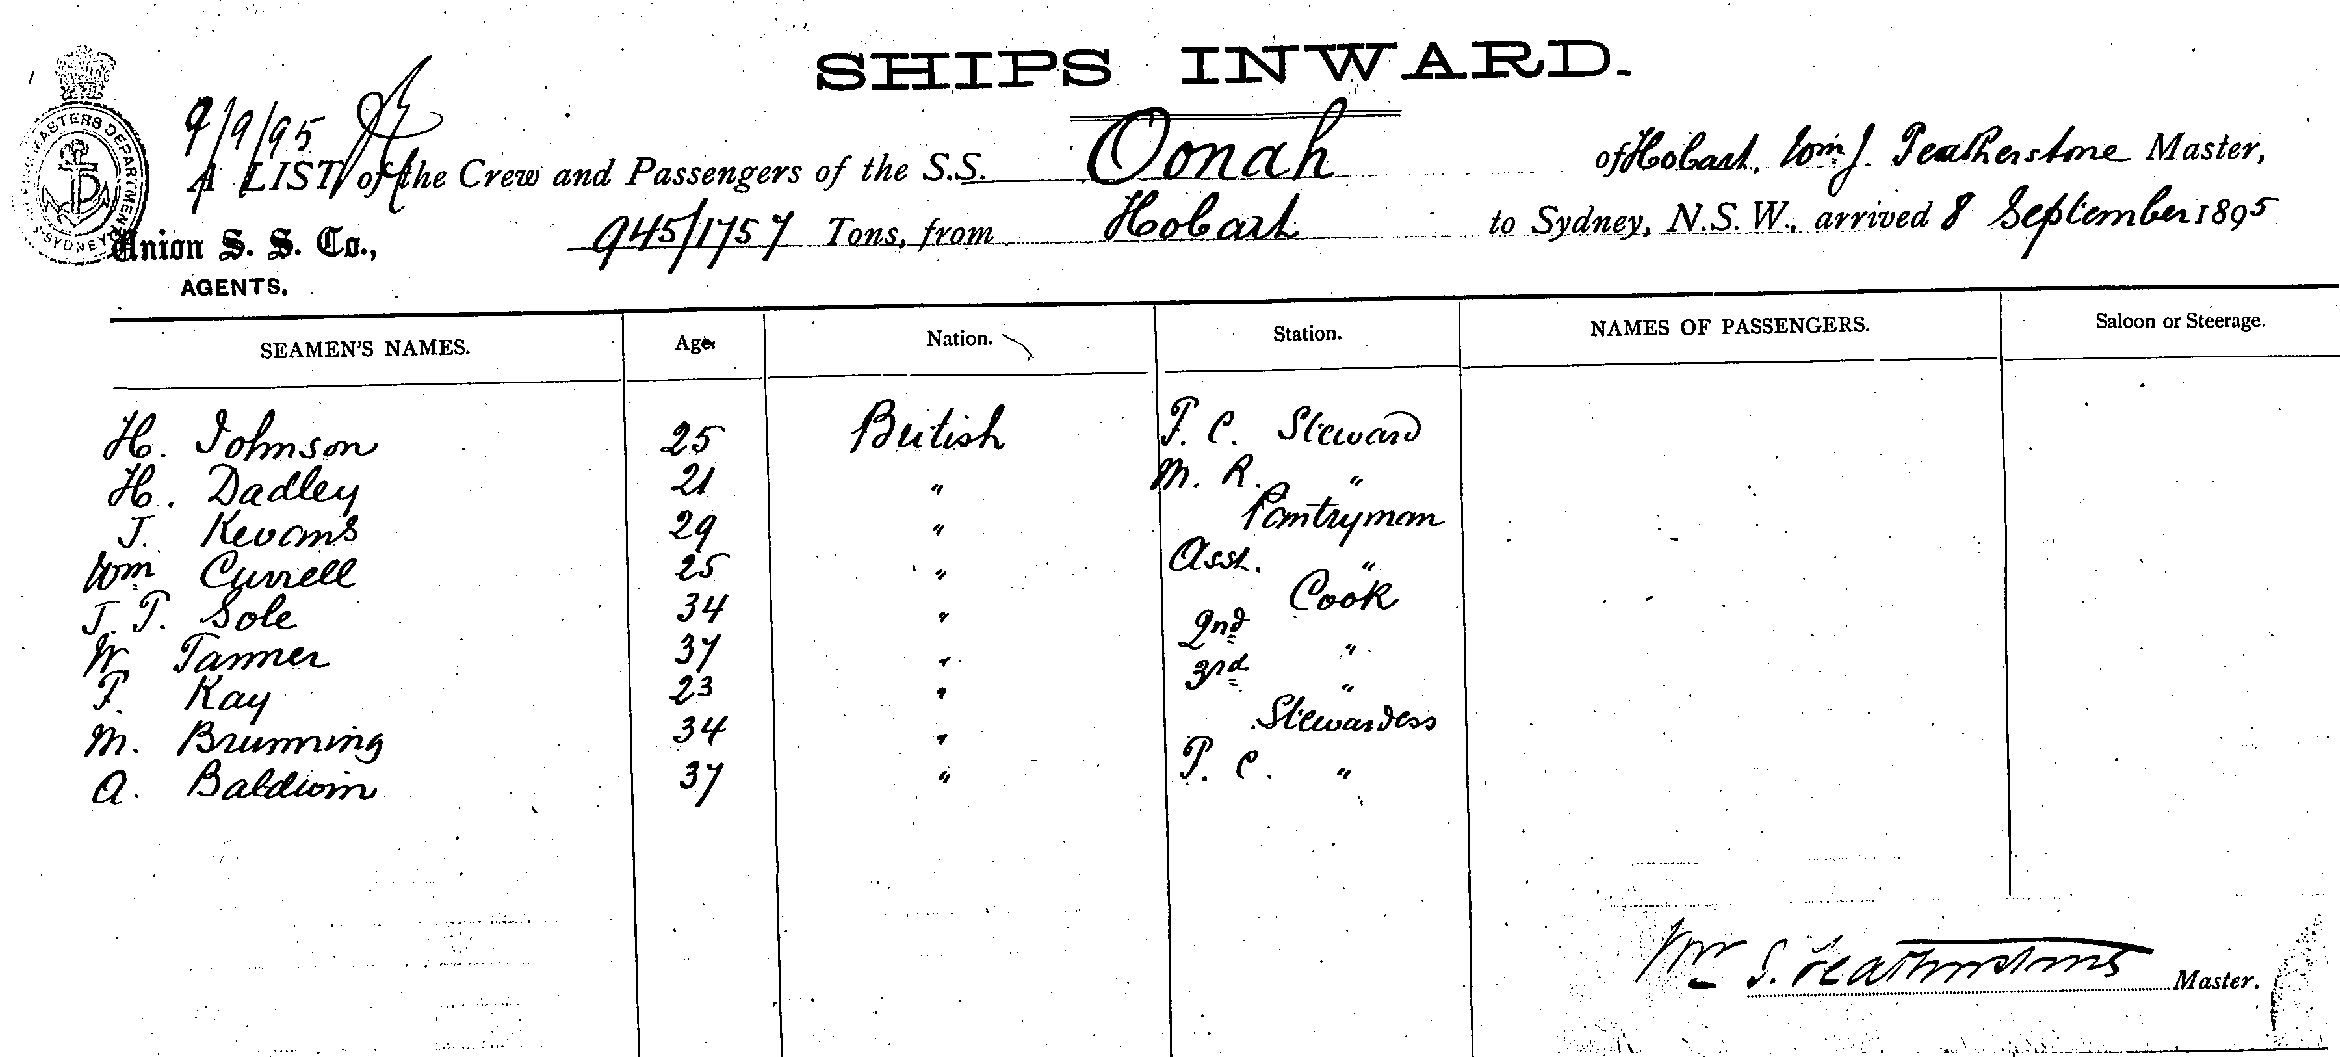 SHIPS INWARD.
9/9/95
A LIST of the Crew and Passengers of the S.S. Oonah of Hobart, Wm J. Featherstone Master,
Union S. S. Co., 945/1757 Tons, from Hobart to Sydney, N.S.W., arrived 8 September 1895
AGENTS.
SEAMEN'S NAMES. Age Nation. Station. NAMES OF PASSENGERS. Saloon or Steerage.
H. Johnson 25 British F. C. Steward
H. Dadley 21 " M. R. "
J. Kevans 29 " Pantryman
Wm Currell 25 " Asst. "
J. T. Sole 34 " Cook
W Tanner 37 " 2nd "
F. Kay 23 " 3rd "
M. Brunning 34 " Stewardess
A. Baldwin 37 " F. C. "
Wm J. Featherstone Master.